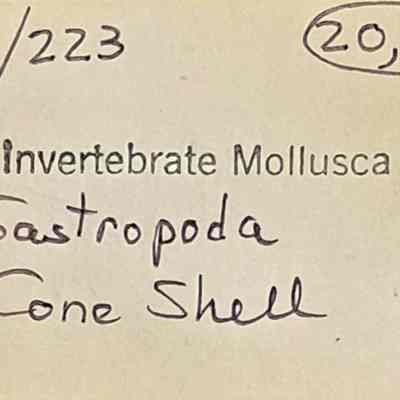 /223 20,
Invertebrate Mollusca
Gastropoda
Cone Shell